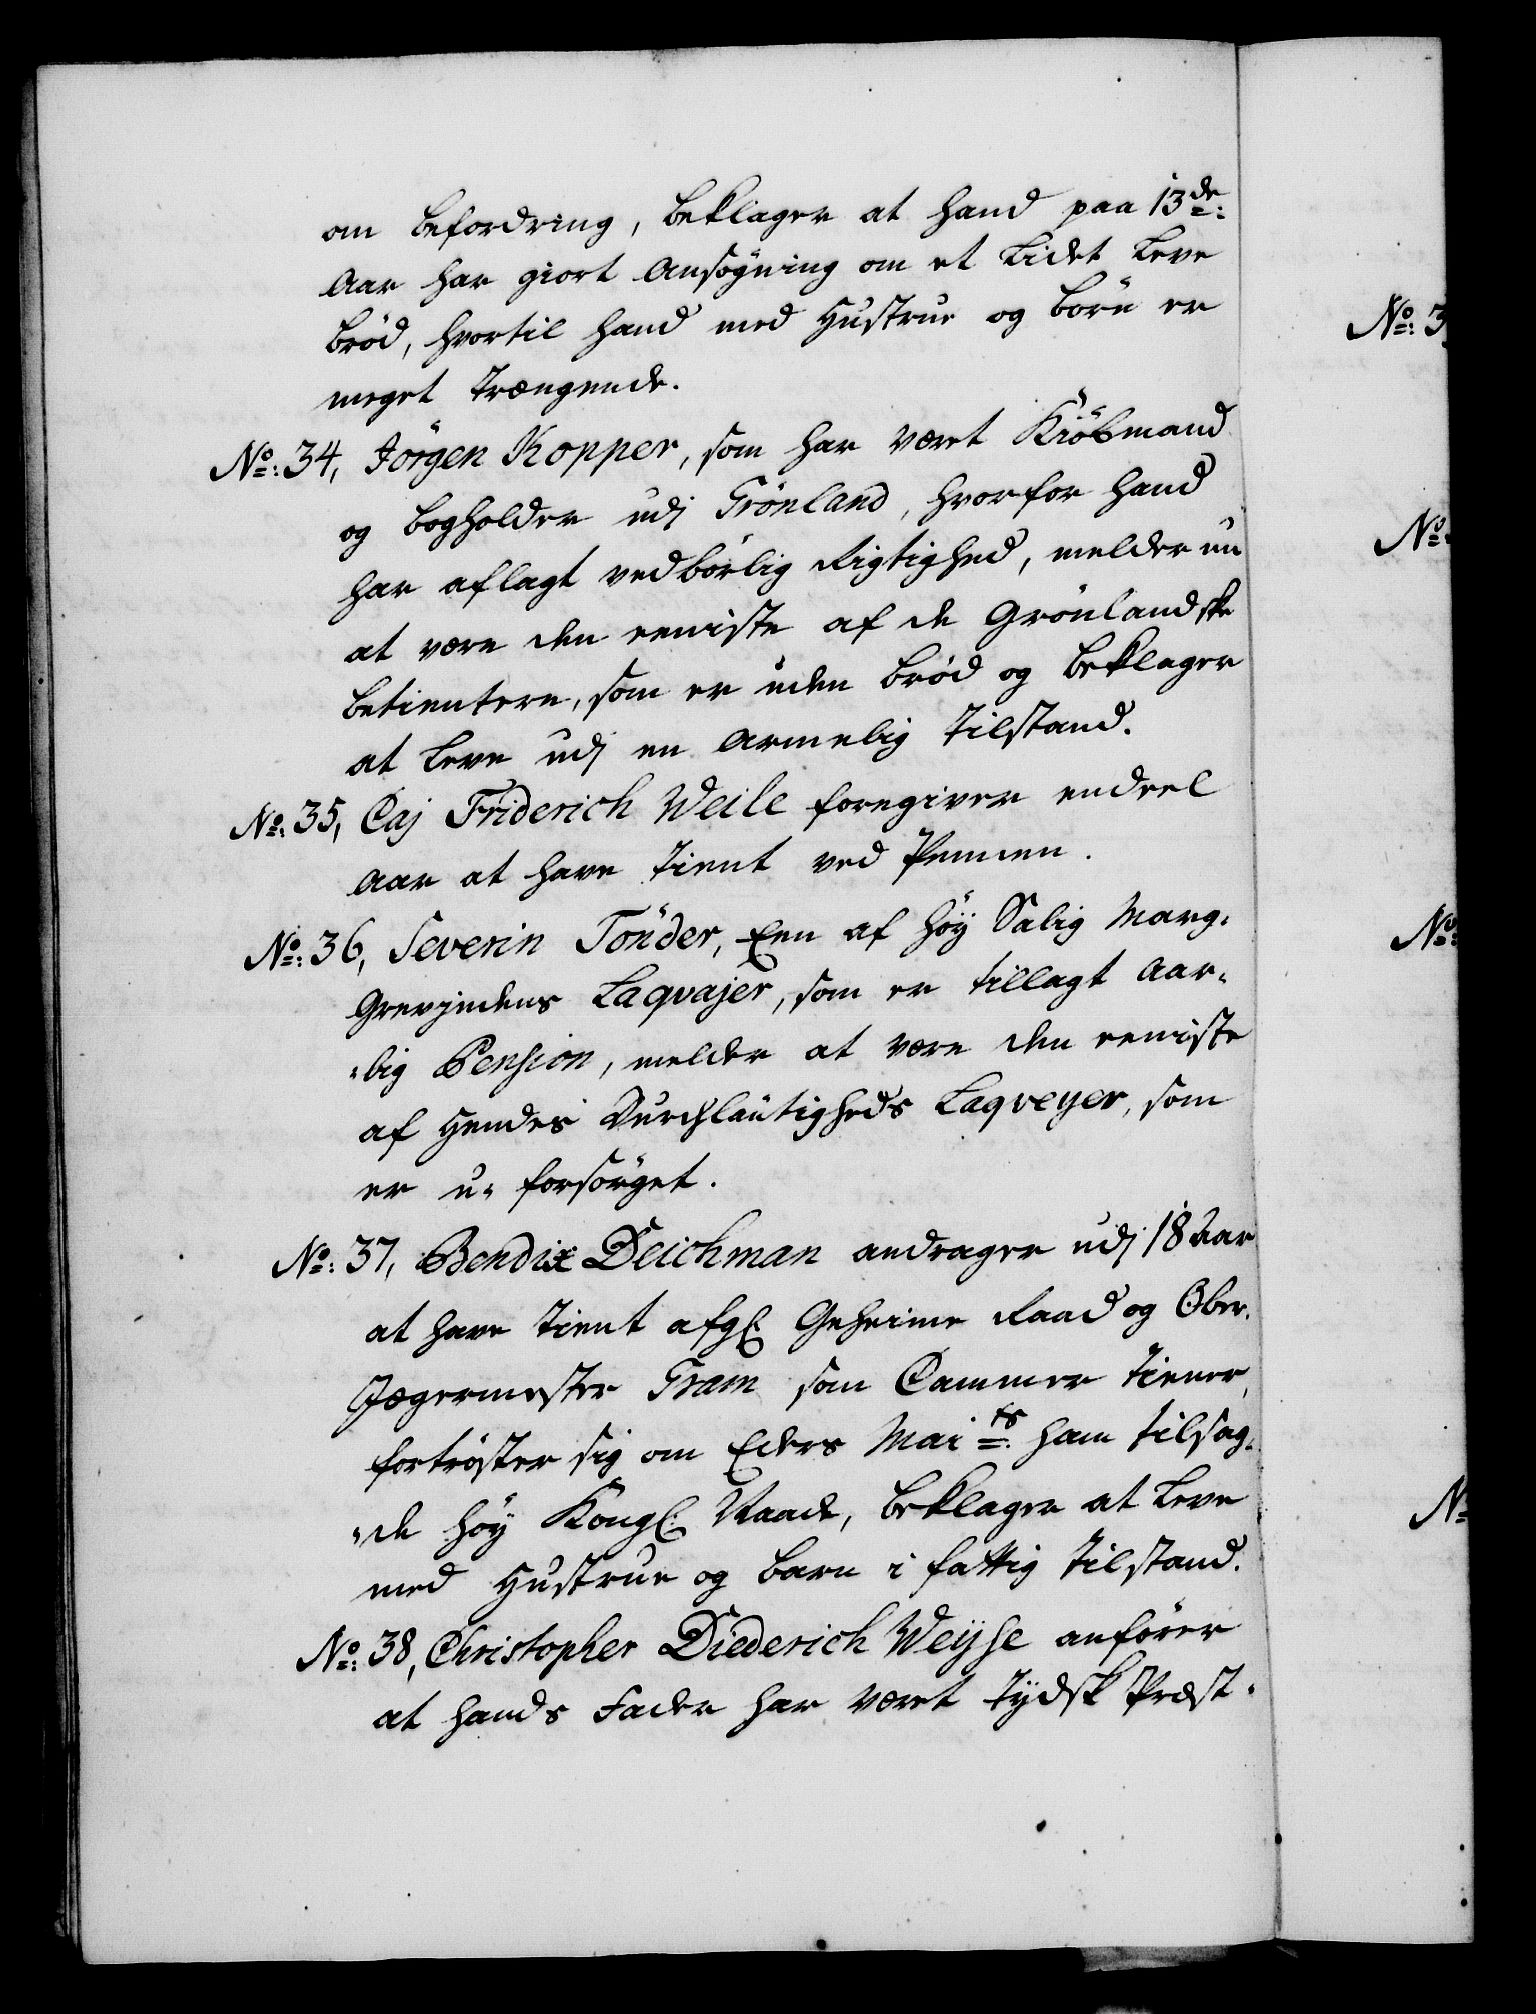 om befordring, beklager at hand paa 13de:
Aar har giort Ansøgning om et Lidet Leve
brød, hvortil hand med Hustrue og börn er
meget Trængende.
No: 34, Jörgen Kopper, som har været Kiöbmand
og bogholder udj Grönland, hvorfor hand
har aflagt vedbörlig Rigtighed, melder nu
at være den eeniste af de Grönlandske
betientere, som er uden brød og beklager
at leve udj en Armelig Tilstand.
No: 35, Caj Friderich Weile foregiver endeel
Aar at have tient ved Pennen.
No: 36, Severin Tönder, Een af høy Salig Marg-
Grevindens Laqvajer, som er tillagt Aar-
-lig Pension, melder at være den eeniste
af Hendes Durchlautigheds Laqveyer, som
er u- forsörget.
No: 37, Bendix Deichman andrager udj 18 Aar
at have tient afg: Geheime Raad og Ober-
Jægermester Gram som Cammer tiener,
fortröster sig om Eders Maits: ham tilsag-
-de høy Kongl: Naade, beklager at leve
med Hustrue og barn i fattig tilstand.
No: 38, Christopher Diederich Weyhe anförer
at hands Fader har været tydsk Præst-
No: 3
No:
No:
No